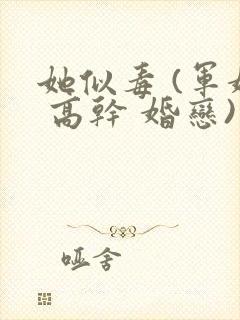 她似毒(軍婚
高幹 婚戀)
哑舍